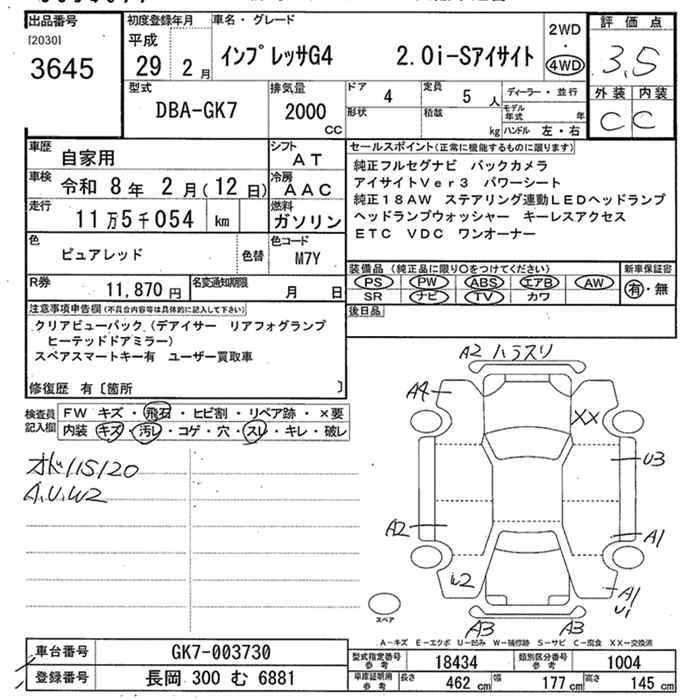 出品番号
[2030]
3645
初度登録年月
平成
29年 2月
車名・グレード
インプレッサG4 2.0i-Sアイサイト
2WD
・
4WD
評価点
3.5
外装 内装
C C
型式
DBA-GK7
排気量
2000
CC
ドア
4
定員
5人
形状
積載
kg
ディーラー・並行
モデル年式 年
ハンドル 左・右
車歴
自家用
シフト
AT
車検
令和 8年 2月(12日)
冷房
AAC
走行
11万5千054 km
燃料
ガソリン
色
ピュアレッド
色替
色コード
M7Y
R券
11,870円
名変通知期限
月 日
セールスポイント(正常に機能するものに限ります)
純正フルセグナビ バックカメラ
アイサイトVer3 パワーシート
純正18AW ステアリング連動LEDヘッドランプ
ヘッドランプウォッシャー キーレスアクセス
ETC VDC ワンオーナー
装備品(純正品に限り○をつけてください)
PS PW ABS エアB AW
SR ナビ TV カワ
新車保証書
有・無
後日品
注意事項申告欄(不具合内容等は具体的に記入して下さい)
クリアビューパック(デアイサー リアフォグランプ
ヒーテッドドアミラー)
スペアスマートキー有 ユーザー買取車
修復歴 有〔箇所 〕
検査員
記入欄
FW キズ・飛石・ヒビ割・リペア跡・×要
内装 キズ・汚レ・コゲ・穴・スレ・キレ・破レ
オド115120
A.U.W2
A2 ハラスリ
A4
XX
U3
A2
A1
W2
A1
U1
A3 A3
スペア
A-キズ E-エクボ U-凹み W-補修跡 S-サビ C-腐食 XX-交換済
車台番号
GK7-003730
登録番号
長岡 300 む 6881
型式指定番号
参考
18434
類別区分番号
参考
1004
車庫証明用
参考
長さ 462cm 幅 177cm 高さ 145cm